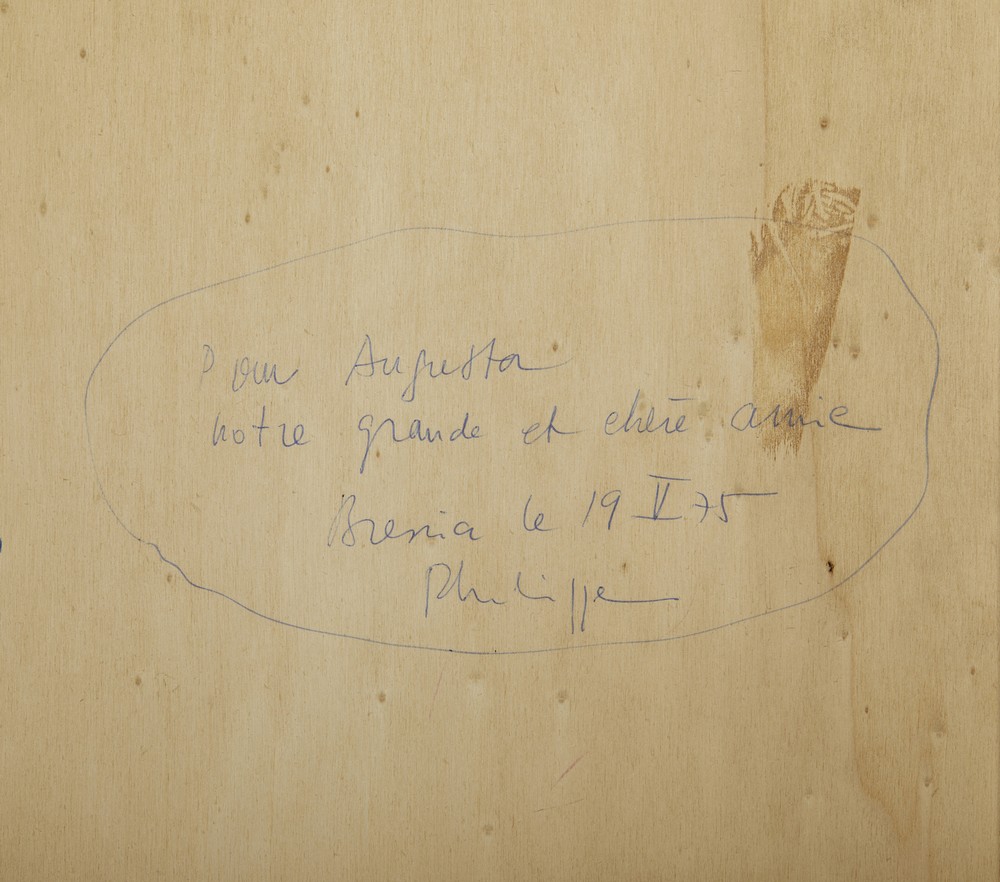 Pour Augusta
notre grande et chère amie
Brescia le 19 V 75
Philippe